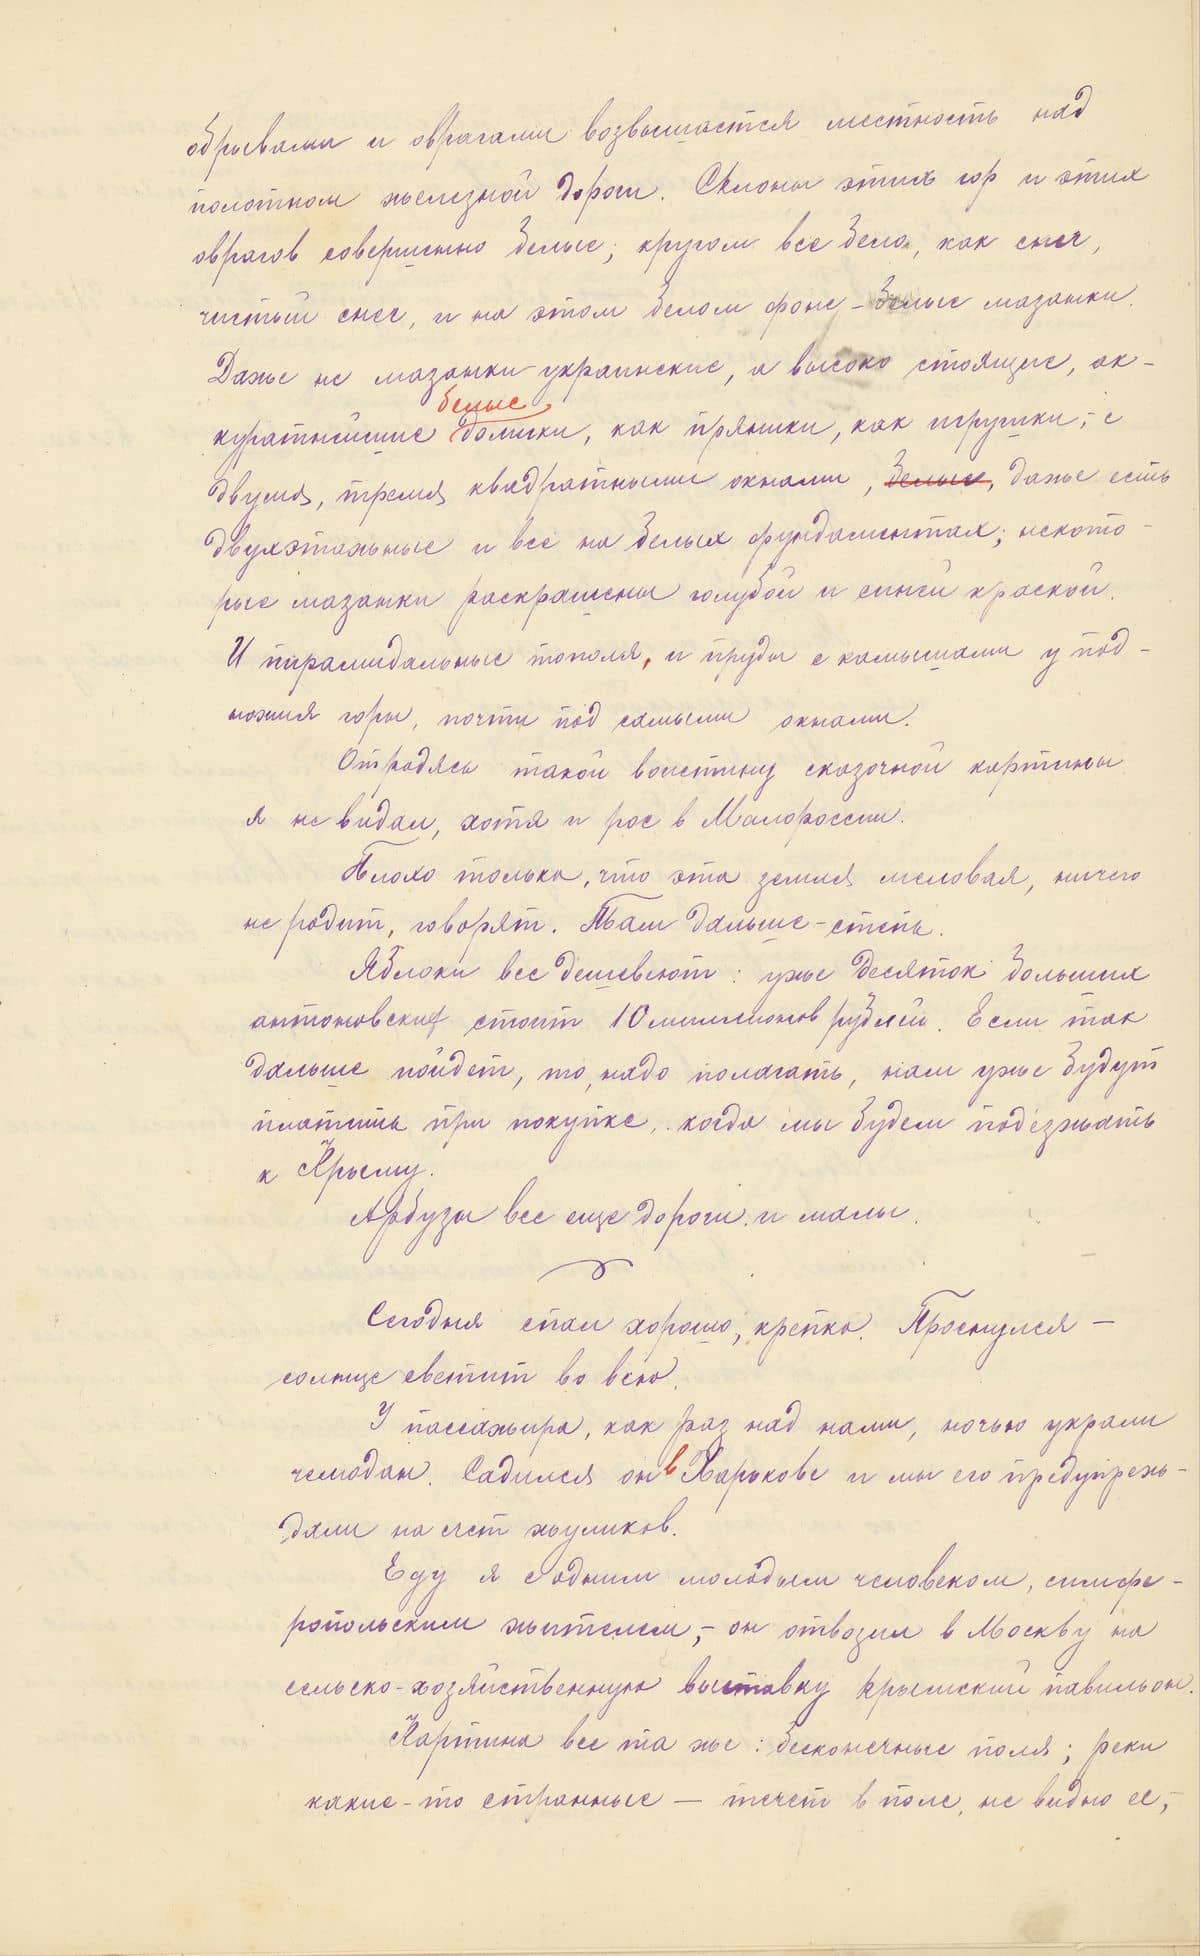 обрывами и оврагами возвышается местность над
полотном железной дороги. Склоны этих гор и этих
оврагов совершенно белые; кругом все бело, как снег,
чистый снег, и на этом белом фоне - белые мазанки.
Даже не мазанки украинские, а высоко стоящие, ак-
белые
куратнейшие домики, как пряники, как игрушки,- с
двумя, тремя квадратными окнами, белые, даже есть
двухэтажные и все на белых фундаментах; некото-
рые мазанки раскрашены голубой и синей краской.
И пирамидальные тополя, и пруды с камышами у под-
ножия горы, почти под самыми окнами.
Отродясь такой воистину сказочной картины
я не видал, хотя и рос в Малороссии.
Плохо только, что эта земля меловая, ничего
не родит, говорят. Там дальше - степь.
Яблоки все дешевеют: уже десяток больших
антоновских стоит 10 миллионов рублей. Если так
дальше пойдет, то, надо полагать, нам уже будут
платить при покупке, когда мы будем подезжать
к Крыму.
Арбузы все еще дороги и малы.
Сегодня спал хорошо, крепко. Проснулся —
солнце светит во всю.
У пассажира, как раз над нами, ночью украли
чемодан. Садился он в Харькове и мы его предупреж-
дали на счет жуликов.
Еду я с одним молодым человеком, симфе-
ропольским жителем,- он отвозил в Москву на
сельско-хозяйственную выставку крымский павильон.
Картина все та же: бесконечные поля; реки
какие-то странные — течет в поле, не видно ее,-